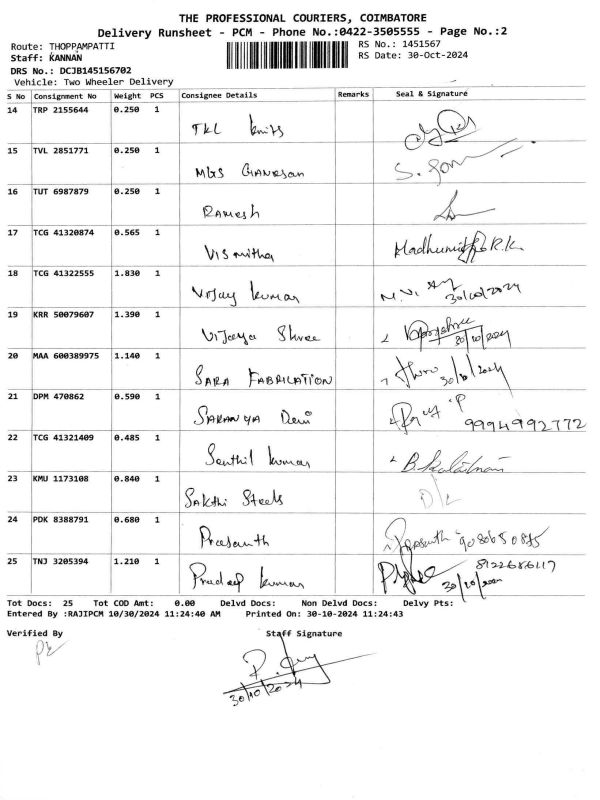 THE PROFESSIONAL COURIERS, COIMBATORE
Delivery Runsheet - PCM - Phone No.:0422-3505555 - Page No.:2
Route: THOPPAMPATTI RS No.: 1451567
Staff: KANNAN RS Date: 30-Oct-2024
DRS No.: DCJB145156702
Vehicle: Two Wheeler Delivery
S No Consignment No Weight PCS Consignee Details Remarks Seal & Signature
14 TRP 2155644 0.250 1 TKL knits
15 TVL 2851771 0.250 1 M&S GANESAN
16 TUT 6987879 0.250 1 RAMESH
17 TCG 41320874 0.565 1 Vismitha R.K.
18 TCG 41322555 1.830 1 Vijay kumar 30/10/2024
19 KRR 50079607 1.390 1 Vijaya Shree 30/10/2024
20 MAA 600389975 1.140 1 SARA FABRICATION 30/10/2024
21 DPM 470862 0.590 1 SARANYA Devi 9994992772
22 TCG 41321409 0.485 1 Senthil kumar
23 KMU 1173108 0.840 1 SAKthi Steels
24 PDK 8388791 0.680 1 Prasanth
25 TNJ 3205394 1.210 1 Pradeep kumar 8122686117
30/10/2024
Tot Docs: 25 Tot COD Amt: 0.00 Delvd Docs: Non Delvd Docs: Delvy Pts:
Entered By :RAJIPCM 10/30/2024 11:24:40 AM Printed On: 30-10-2024 11:24:43
Verified By Staff Signature
30/10/2024